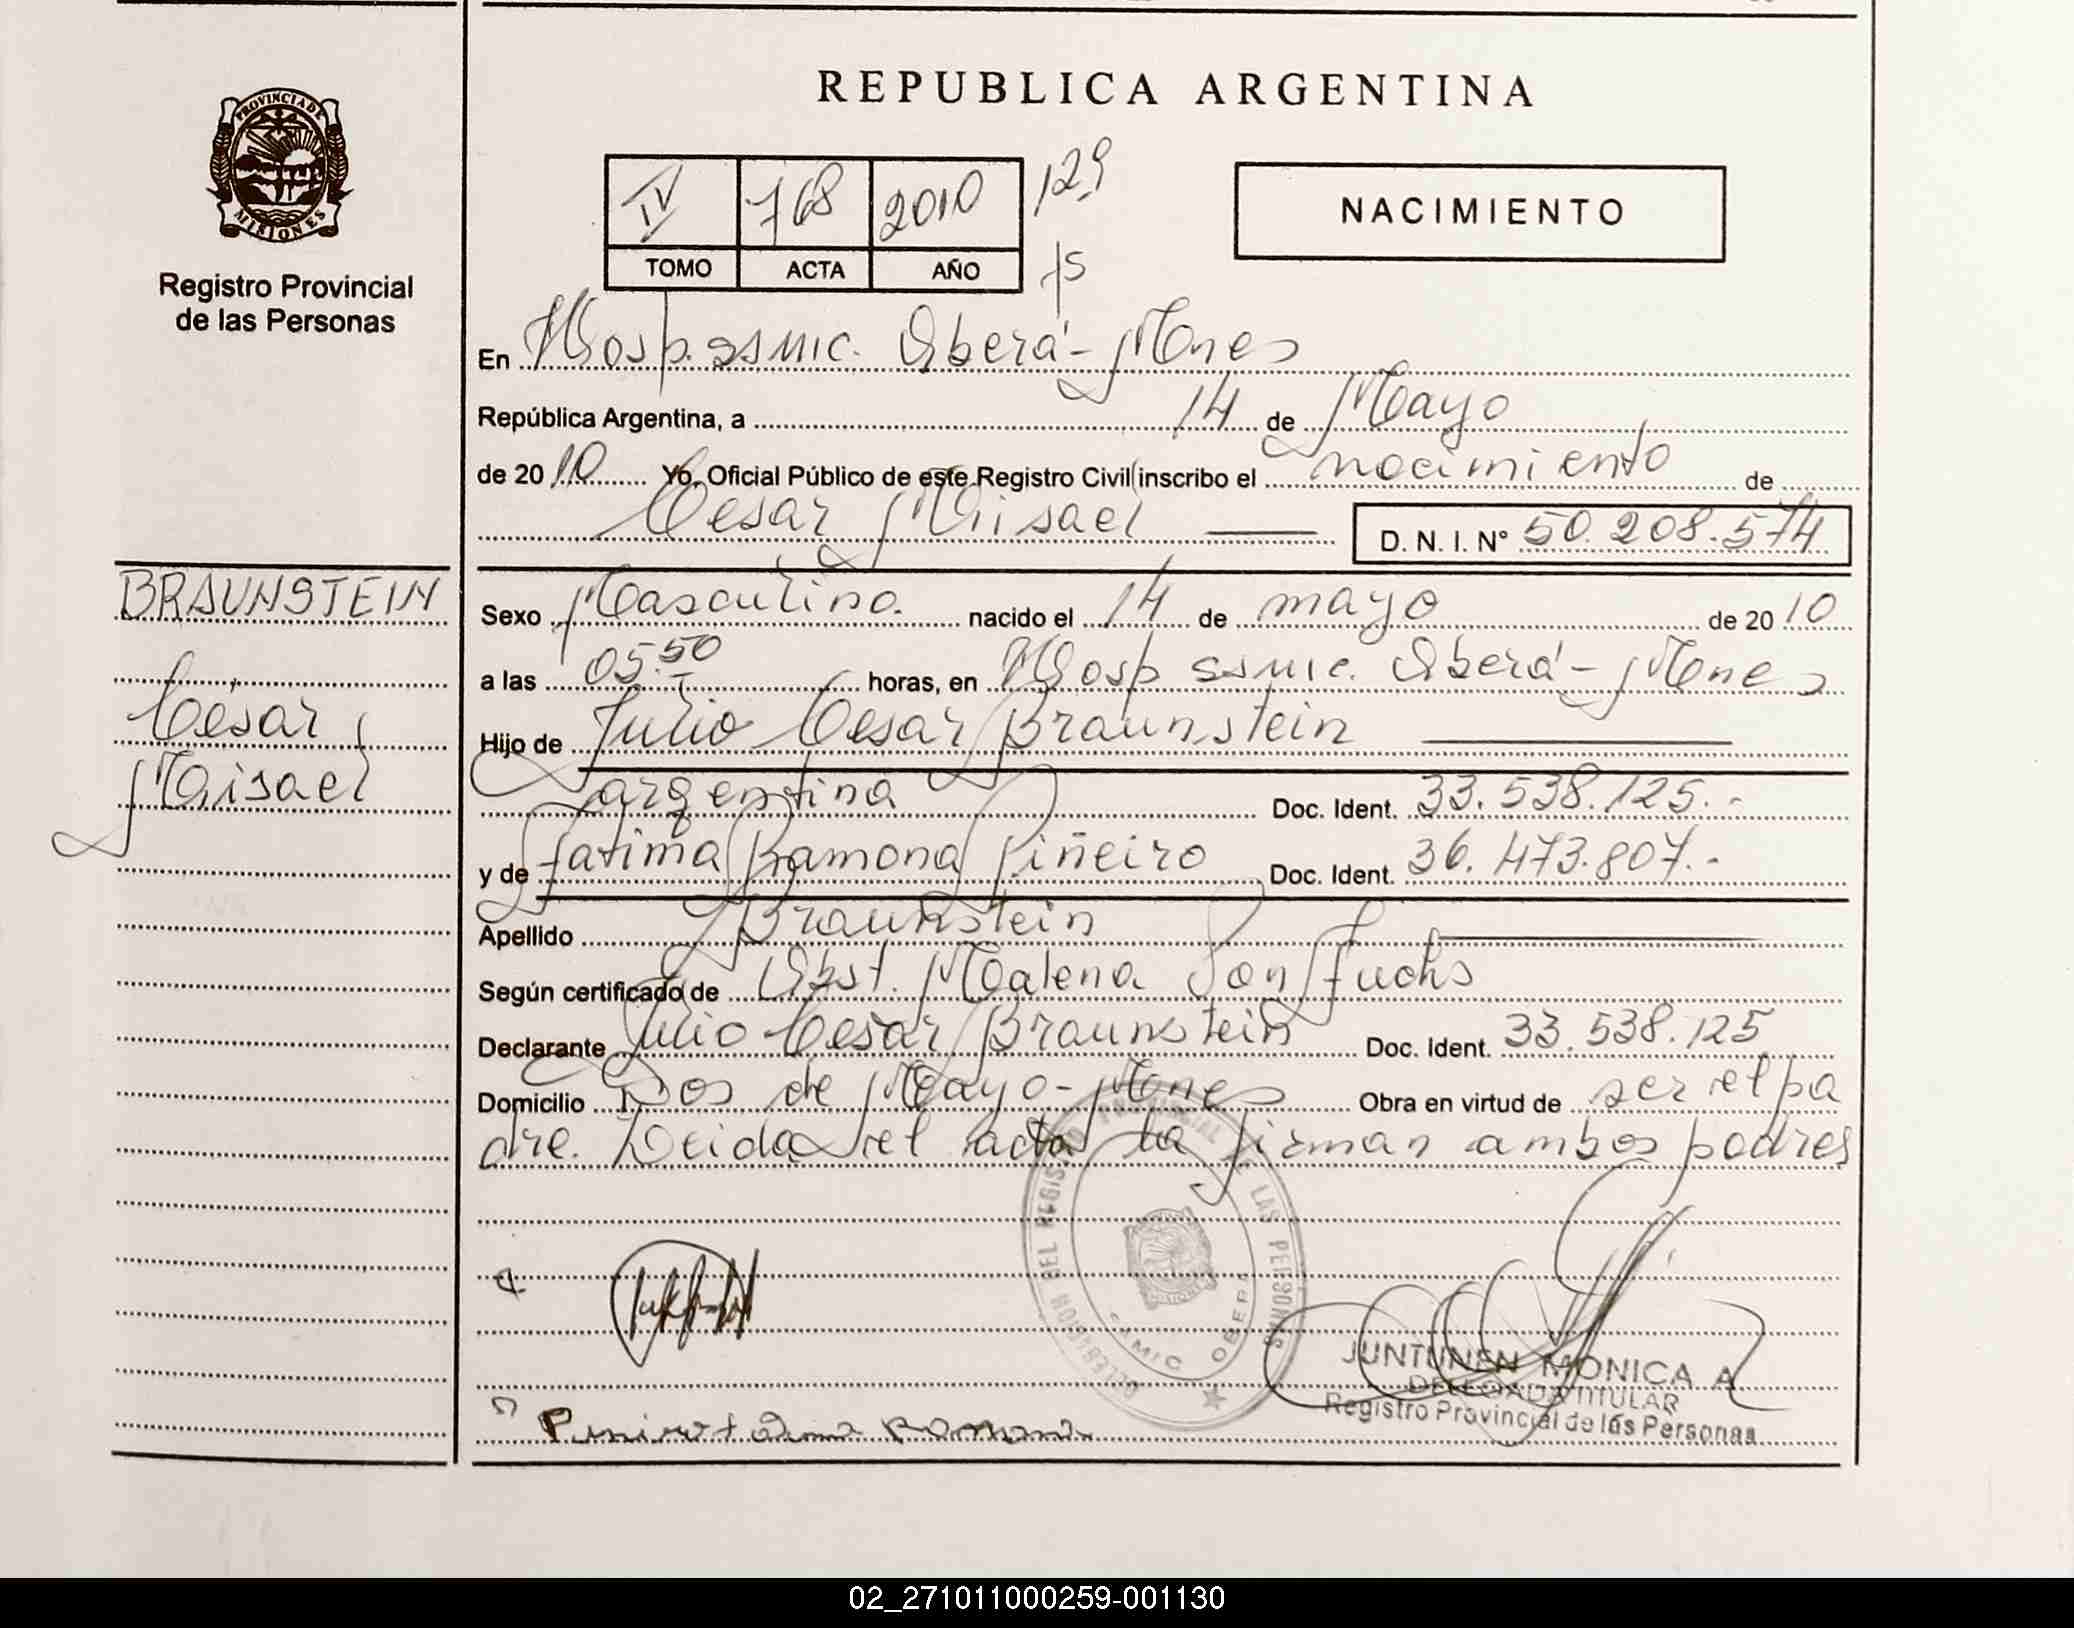 REPUBLICA ARGENTINA
PROVINCIA DE
MISIONES
Registro Provincial
de las Personas
IV 768 2010 129
TOMO ACTA AÑO
NACIMIENTO
En Hosp. ssmic. Oberá - Mnes
República Argentina, a 14 de Mayo
de 2010 Yo, Oficial Público de este Registro Civil inscribo el nacimiento de
Cesar Misael D. N. I. N° 50.208.574
BRAUNSTEIN
César
Misael
Sexo Masculino. nacido el 14 de mayo de 2010
a las 05:50 horas, en Hosp ssmic. Oberá - Mnes
Hijo de Julio Cesar Braunstein
argentina Doc. Ident. 33.538.125.-
y de Fatima Ramona Piñeiro Doc. Ident. 36.473.807.-
Apellido Braunstein
Según certificado de Obst. Malena Son Fuchs
Declarante Julio Cesar Braunstein Doc. Ident. 33.538.125
Domicilio Dos de Mayo - Mnes Obra en virtud de ser el pa
dre. Leida el acta la firman ambos padres
DELEGACION DEL REGISTRO PROVINCIAL DE LAS PERSONAS
SAMIC OBERA
JUNTUNEN MONICA A
DELEGADA TITULAR
Registro Provincial de las Personas
02_271011000259-001130